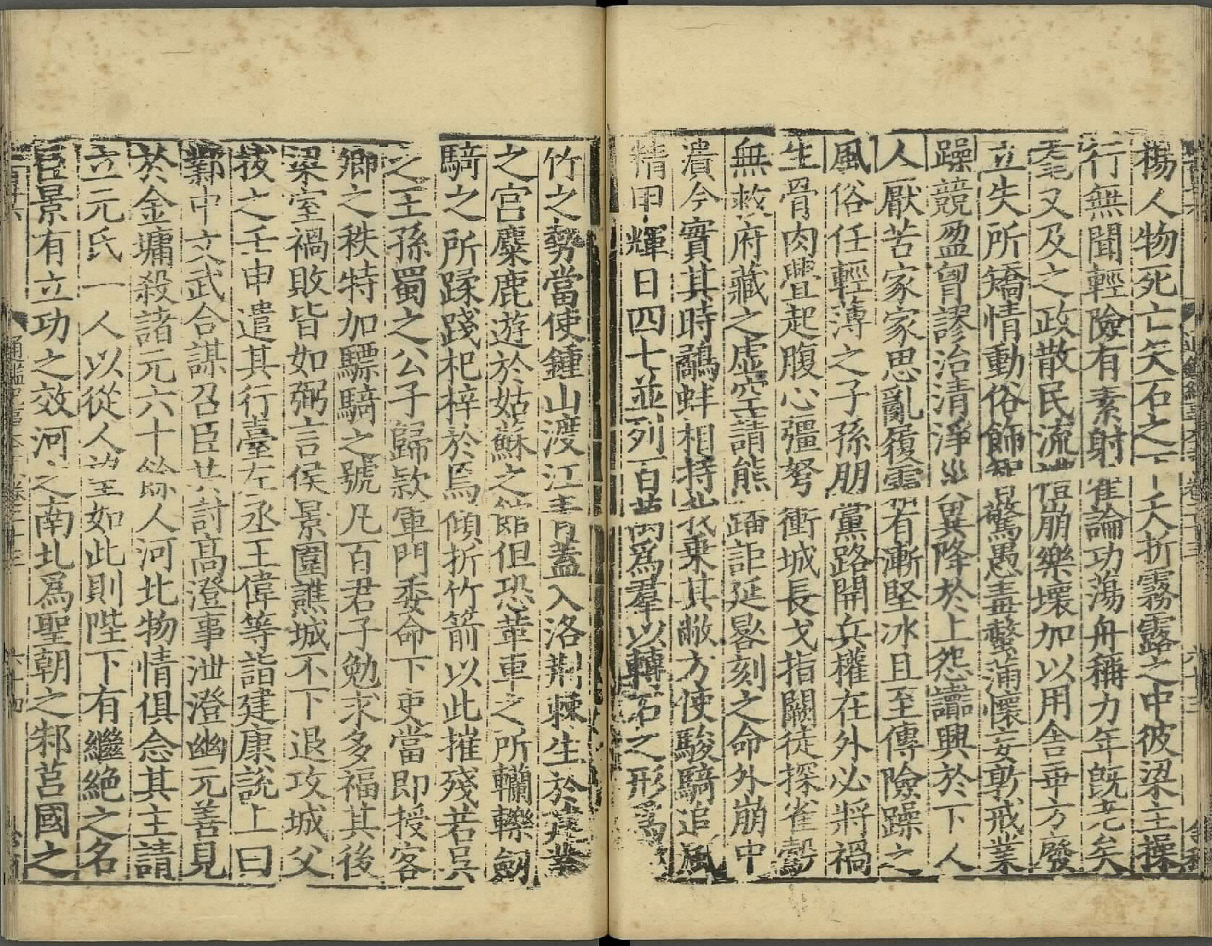 楊人物死亡矢石之下夭折霧露之中彼梁主操
行無聞輕險有素射雀論功蕩舟稱力年既老矣
耄又及之政散民流禮崩樂壞加以用舍乖方廢
立失所矯情動俗飾智驚愚毒螫滿懷妄敦戒業
躁競盈胸謬治清淨災異降於上怨讟興於下人
人厭苦家家思亂履霜有漸堅冰且至傳險躁之
風俗任輕薄之子孫朋黨路開兵權在外必將禍
生骨肉舋起腹心彊弩衝城長戈指闕徒探雀鷇
無救府藏之虛空請熊蹯詎延晷刻之命外崩中
潰今實其時鷸蚌相持我乘其敝方使駿騎追風
精甲輝日四七並列百萬爲羣以轉石之形爲破
竹之勢當使鍾山渡江青蓋入洛荆棘生於建業
之宮麋鹿遊於姑蘇之館但恐革車之所轥轢劔
騎之所蹂踐杞梓於焉傾折竹箭以此摧殘若吳
之王孫蜀之公子歸款軍門委命下吏當即授客
卿之秩特加驃騎之號凡百君子勉求多福其後
梁室禍敗皆如弼言侯景圍譙城不下退攻城父
拔之壬申遣其行臺左丞王偉等詣建康說上曰
鄴中文武合謀召臣共討高澄事泄澄幽元善見
於金墉殺諸元六十餘人河北物情俱念其主請
立元氏一人以從人望如此則陛下有繼絶之名
臣景有立功之效河之南北爲聖朝之邾莒國之